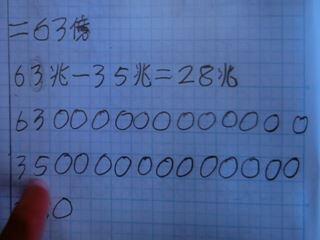 =63億
63兆-35兆=28兆
63000000000000
35000000000000
0